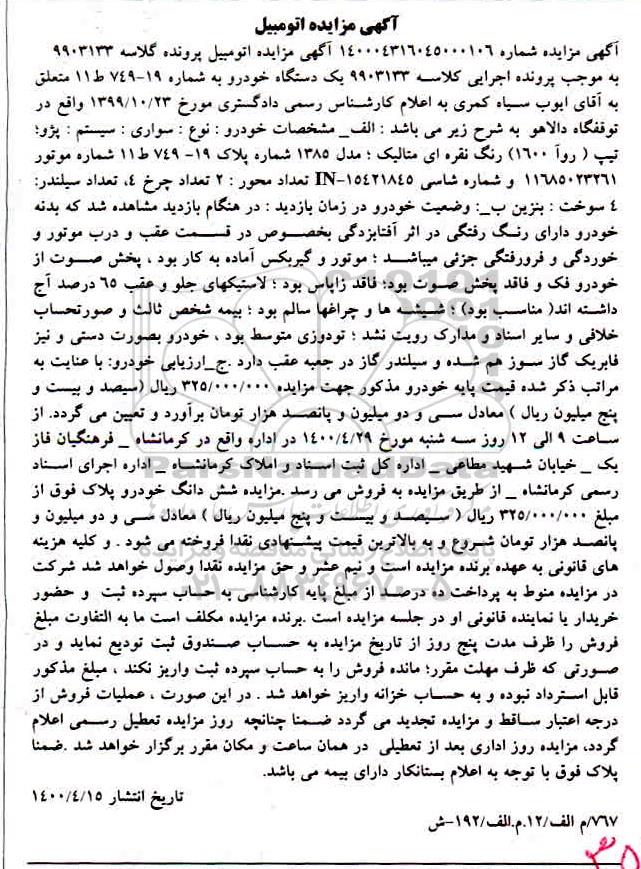 آگهی مزایده اتومبیل
آگهی مزایده شماره ۱۴۰۰۰۴۳۱۶۰۴۵۰۰۰۱۰۶ آگهی مزایده اتومبیل پرونده گلاسه ۹۹۰۳۱۳۳
به موجب پرونده اجرایی کلاسه ۹۹۰۳۱۳۳ یک دستگاه خودرو به شماره ۱۹-۷۴۹ ط۱۱ متعلق
به آقای ایوب سیاه کمری به اعلام کارشناس رسمی دادگستری مورخ ۱۳۹۹/۱۰/۲۳ واقع در
توقفگاه دالاهو به شرح زیر می باشد : الف_ مشخصات خودرو : نوع : سواری : سیستم : پژو؛
تیپ ( روآ ۱۶۰۰) رنگ نقره ای متالیک ؛ مدل ۱۳۸۵ شماره پلاک ۱۹- ۷۴۹ ط۱۱ شماره موتور
۱۱۶۸۵۰۲۳۲۶۱ و شماره شاسی IN-۱۵۴۲۱۸۴۵ تعداد محور : ۲ تعداد چرخ ۴، تعداد سیلندر:
۴ سوخت : بنزین ب_: وضعیت خودرو در زمان بازدید : در هنگام بازدید مشاهده شد که بدنه
خودرو دارای رنگ رفتگی در اثر آفتابزدگی بخصوص در قسمت عقب و درب موتور و
خوردگی و فرورفتگی جزئی میباشد ؛ موتور و گیربکس آماده به کار بود ، پخش صوت از
خودرو فک و فاقد پخش صوت بود؛ فاقد زاپاس بود ؛ لاستیکهای جلو و عقب ۶۵ درصد آج
داشته اند( مناسب بود) ؛ شیشه ها و چراغها سالم بود ؛ بیمه شخص ثالث و صورتحساب
خلافی و سایر اسناد و مدارک رویت نشد ؛ تودوزی متوسط بود ، خودرو بصورت دستی و نیز
فابریک گاز سوز هم شده و سیلندر گاز در جعبه عقب دارد .ج_ارزیابی خودرو: با عنایت به
مراتب ذکر شده قیمت پایه خودرو مذکور جهت مزایده ۳۲۵/۰۰۰/۰۰۰ ریال (سیصد و بیست و
پنج میلیون ریال ) معادل سی و دو میلیون و پانصد هزار تومان برآورد و تعیین می گردد. از
ساعت ۹ الی ۱۲ روز سه شنبه مورخ ۱۴۰۰/۴/۲۹ در اداره واقع در کرمانشاه _ فرهنگیان فاز
یک _ خیابان شهید مطاعی _ اداره کل ثبت اسناد و املاک کرمانشاه _ اداره اجرای اسناد
رسمی کرمانشاه _ از طریق مزایده به فروش می رسد .مزایده شش دانگ خودرو پلاک فوق از
مبلغ ۳۲۵/۰۰۰/۰۰۰ ریال ( سیصد و بیست و پنج میلیون ریال ) معادل سی و دو میلیون و
پانصد هزار تومان شروع و به بالاترین قیمت پیشنهادی نقدا فروخته می شود . و کلیه هزینه
های قانونی به عهده برنده مزایده است و نیم عشر و حق مزایده نقدا وصول خواهد شد شرکت
در مزایده منوط به پرداخت ده درصد از مبلغ پایه کارشناسی به حساب سپرده ثبت و حضور
خریدار یا نماینده قانونی او در جلسه مزایده است .برنده مزایده مکلف است ما به التفاوت مبلغ
فروش را ظرف مدت پنج روز از تاریخ مزایده به حساب صندوق ثبت تودیع نماید و در
صورتی که ظرف مهلت مقرر؛ مانده فروش را به حساب سپرده ثبت واریز نکند ، مبلغ مذکور
قابل استرداد نبوده و به حساب خزانه واریز خواهد شد . در این صورت ، عملیات فروش از
درجه اعتبار ساقط و مزایده تجدید می گردد ضمنا چنانچه روز مزایده تعطیل رسمی اعلام
گردد، مزایده روز اداری بعد از تعطیلی در همان ساعت و مکان مقرر برگزار خواهد شد .ضمنا
پلاک فوق با توجه به اعلام بستانکار دارای بیمه می باشد.
تاریخ انتشار ۱۴۰۰/۴/۱۵
۷۶۷/م الف/۱۲.م.الف/۱۹۲-ش